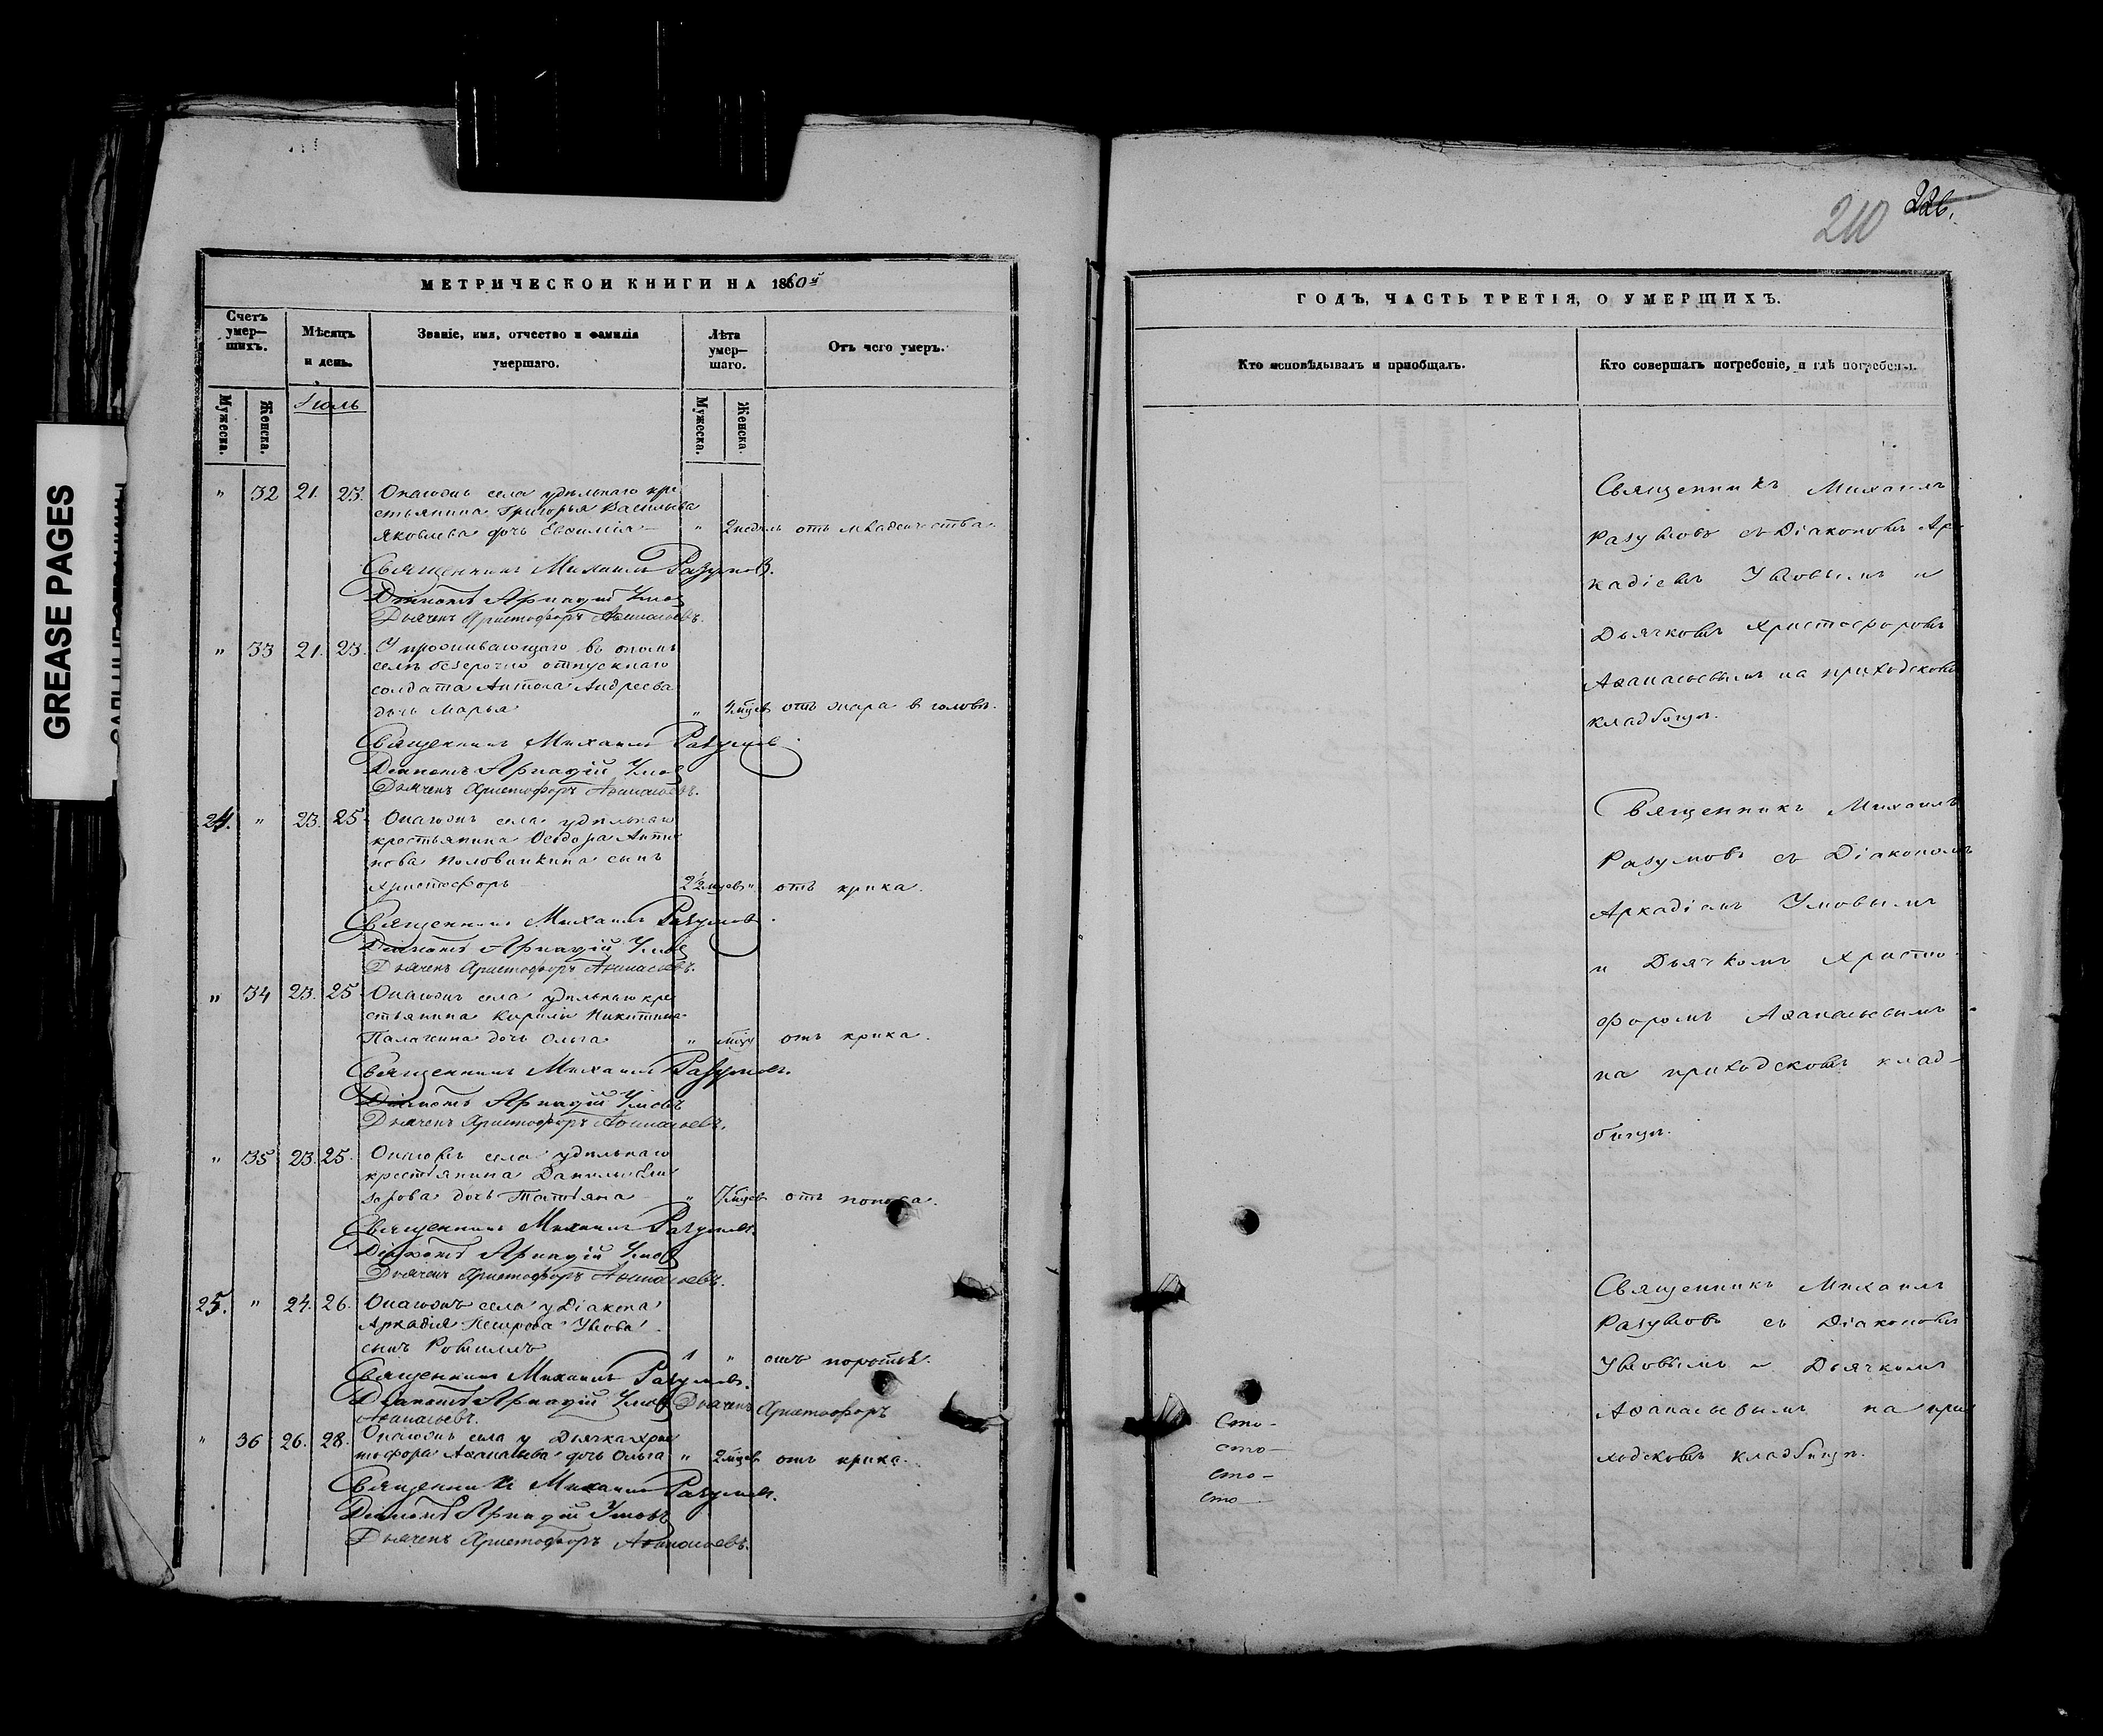 GREASE PAGES
210 226.
МЕТРИЧЕСКОЙ КНИГИ НА 1860й
Счетъ умер—шихъ.
Мѣсяцъ и день.
Званіе, имя, отчество и фамилія умершаго.
Лѣта умер—шаго.
Отъ чего умеръ.
Мужеска.
Женска.
Іюль
Мужеска.
Женска.
" 32 21. 23. Онагожъ села удѣльнаго кре
стьянина Григорья Васильева
Яковлева дочь Евфимія — " 2 недѣль отъ младенчества.
Священникъ Михаилъ Разумовъ.
Діаконъ Аркадій Умовъ
Дьячекъ Христофоръ Афанасьевъ.
" 33 21. 23. У проживающаго въ ономъ
селѣ безсрочно отпускнаго
солдата Антона Андреева
дочь Марья " мцев отъ жара в головѣ.
Священникъ Михаилъ Разумовъ.
Діаконъ Аркадій Умовъ
Дьячекъ Христофоръ Афанасьевъ.
24. " 23. 25. Онагожъ села удѣльнаго
крестьянина Ѳеодора Анти
пова Половинкина сынъ
Христофоръ 2½ мцевъ " отъ крика.
Священникъ Михаилъ Разумовъ.
Діаконъ Аркадій Умовъ
Дьячекъ Христофоръ Афанасьевъ.
" 34 23. 25 Онагожъ села удѣльнаго кре
стьянина Никитина
дочь Ольга " мцу отъ крика.
Священникъ Михаилъ Разумовъ.
Діаконъ Аркадій Умовъ
Дьячекъ Христофоръ Афанасьевъ.
" 35 23. 25. Онагожъ села удѣльнаго
крестьянина Данилы Ели
зарова дочь Татьяна — " 7 мцев отъ поноса.
Священникъ Михаилъ Разумовъ.
Діаконъ Аркадій Умовъ
Дьячекъ Христофоръ Афанасьевъ.
25. " 24. 26. Онагожъ села у Діакона
Аркадія Петрова Умова
сынъ 1 " отъ
Священникъ Михаилъ Разумовъ.
Діаконъ Аркадій Умовъ Дьячекъ Христофоръ
Афанасьевъ.
" 36 26. 28. Онагожъ села у Дьячка Хрис
тофора Афанасьева дочь Ольга " 2 мцев отъ крика.
Священникъ Михаилъ Разумовъ.
Діаконъ Аркадій Умовъ
Дьячекъ Христофоръ Афанасьевъ.
ГОДЪ, ЧАСТЬ ТРЕТІЯ, О УМЕРШИХЪ.
Кто исповѣдывалъ и пріобщалъ.
Кто совершалъ погребеніе, и гдѣ погребены.
Священникъ Михаилъ
Разумовъ съ Діакономъ Ар
кадіемъ Умовымъ и
Дьячкомъ Христофоромъ
Афанасьевымъ на приходскомъ
кладбищѣ.
Священникъ Михаилъ
Разумовъ съ Діакономъ
Аркадіемъ Умовымъ
и Дьячкомъ Христо
форомъ Афанасьевымъ
на приходскомъ клад-
бищѣ.
Священникъ Михаилъ
Разумовъ съ Діакономъ
Умовымъ и Дьячкомъ
Афанасьевымъ на при
ходскомъ кладбищѣ.